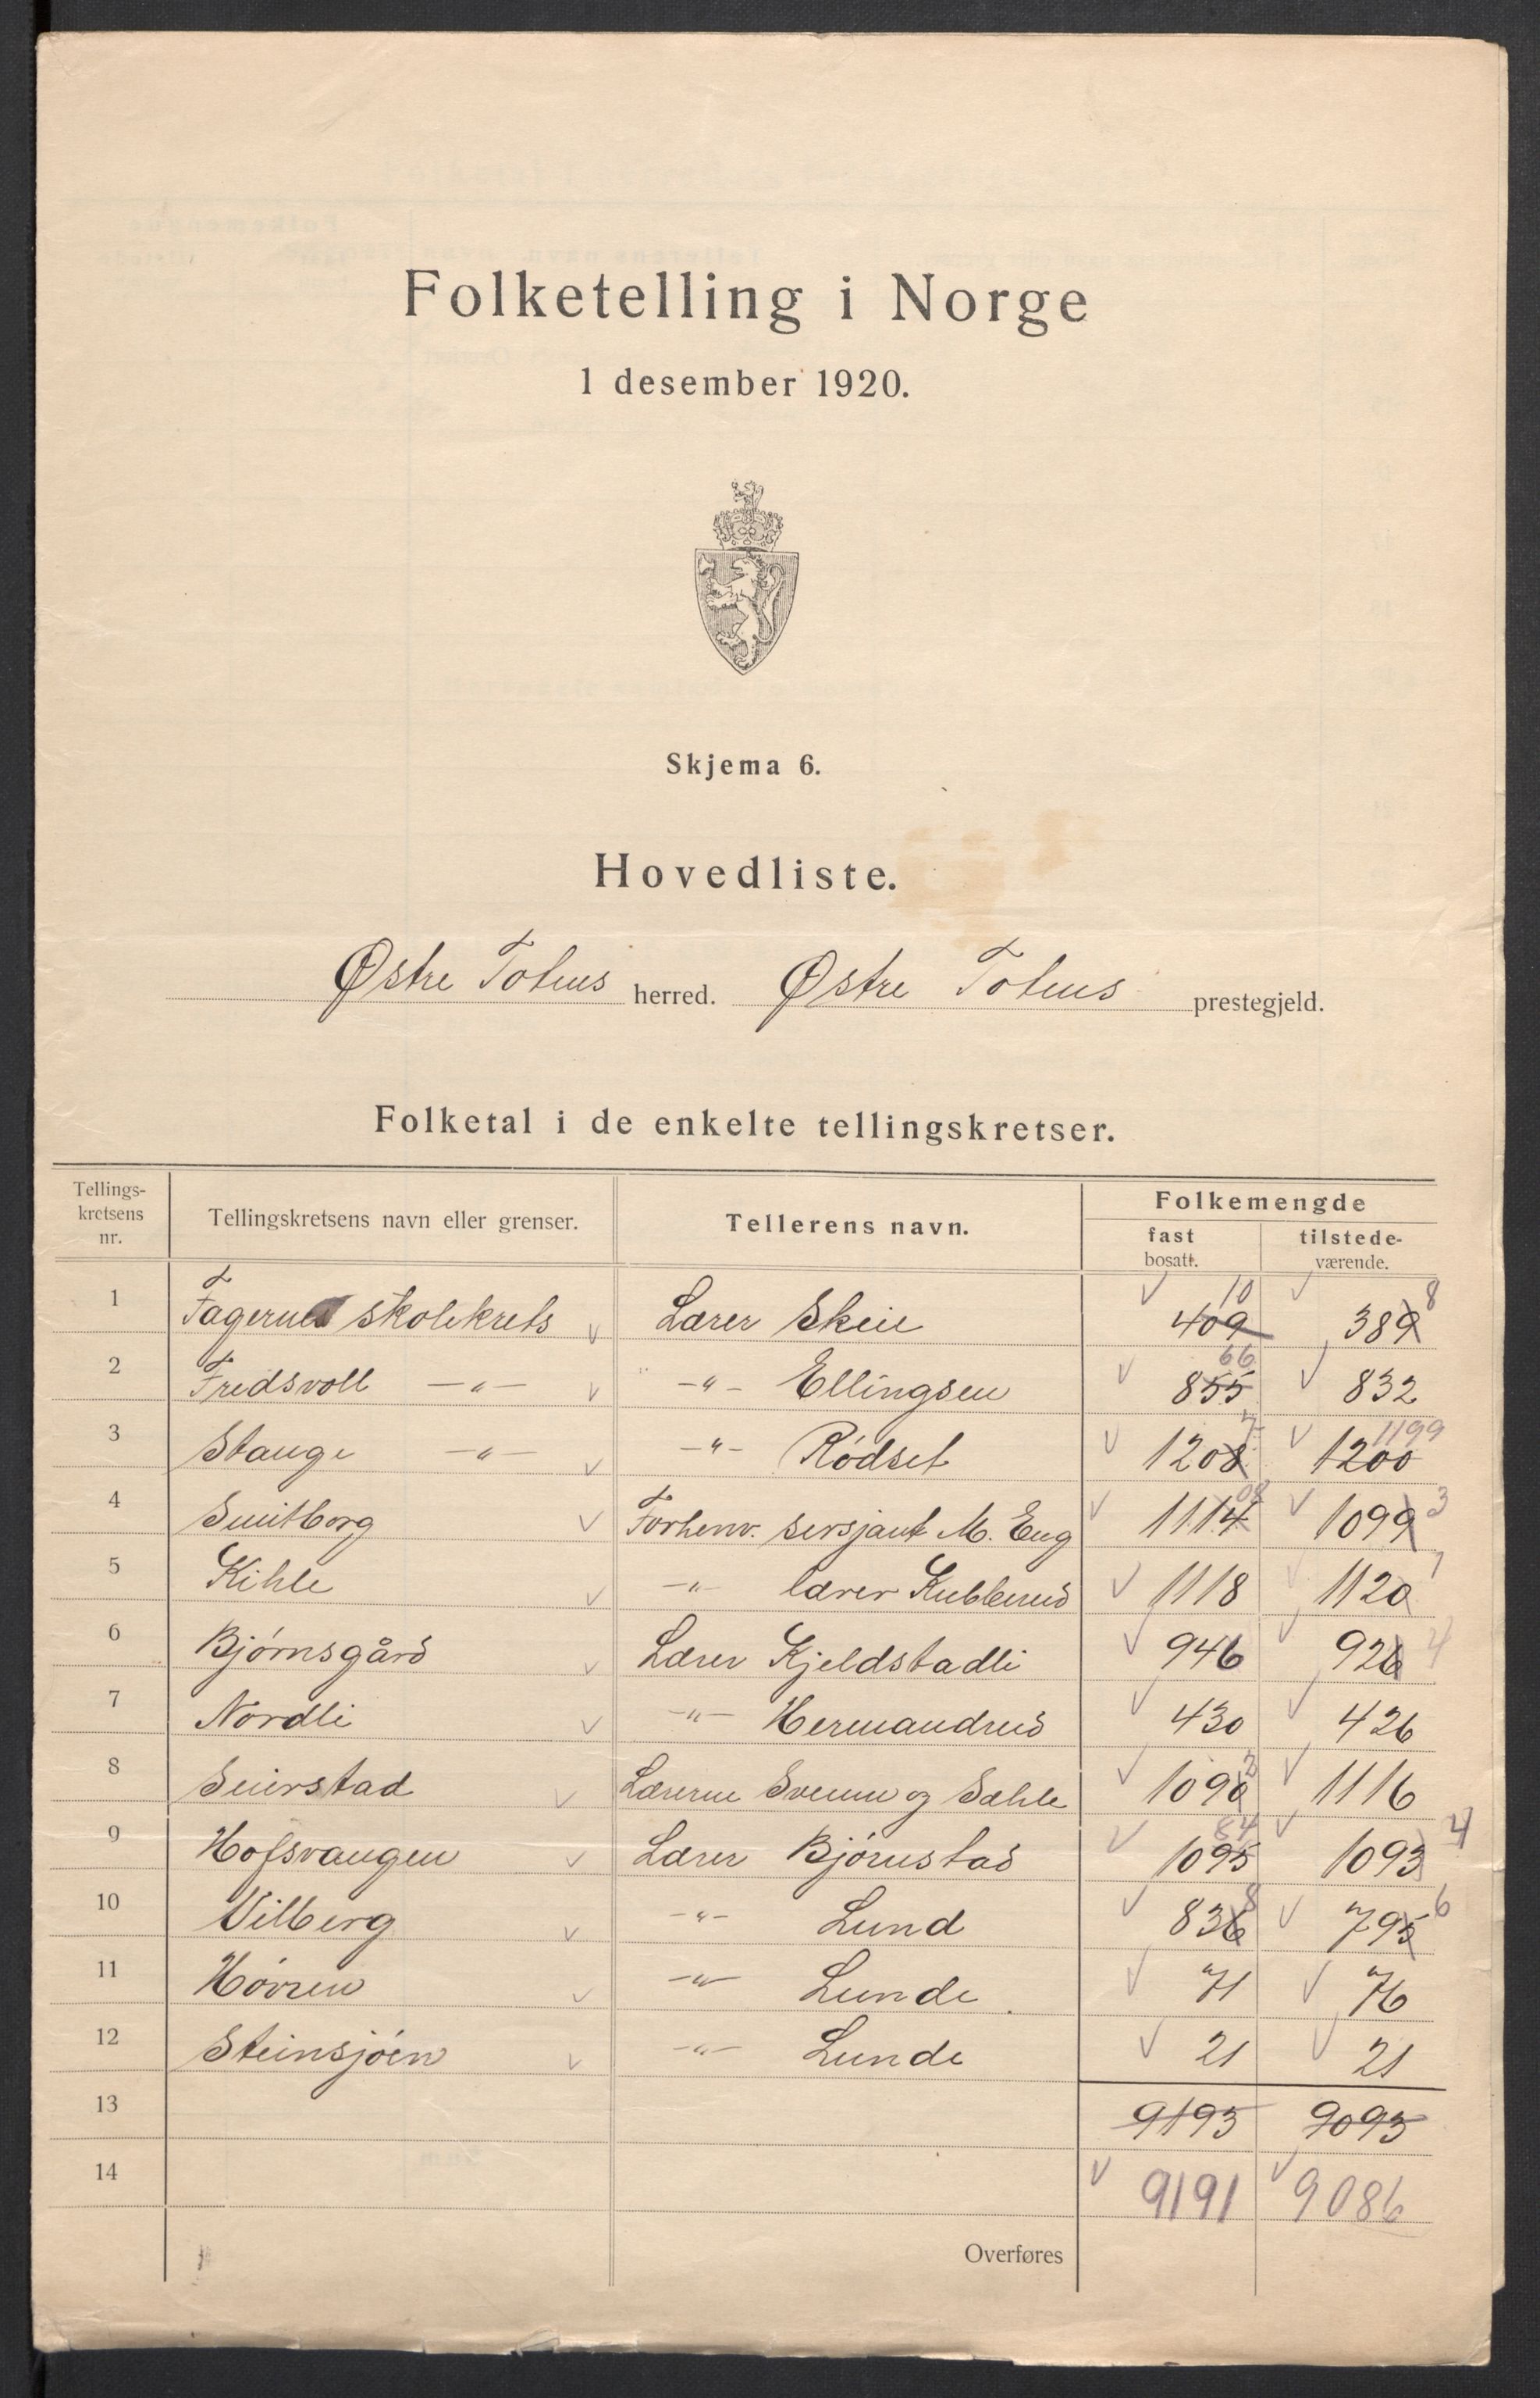 Folketelling i Norge
1 desember 1920.
Skjema 6.
Hovedliste.
Østre Toten herred. Østre Toten prestegjeld.
Folketal i de enkelte tellingskretser.
Tellings-
kretsens
nr.
Tellingskretsens navn eller grenser.
Tellerens navn.
Folkemengde
fast
bosatt.
tilstede-
værende.
1 Fagernes skolekrets v Lærer Skeie v 409 10 v 389 8
2 Fredsvoll —"— v —"— Ellingsen v 855 66 v 832
3 Stange —"— v —"— Rødset v 1208 7 v 1200 1199
4 Smitborg v Forhenv. sersjant M. Eng v 1114 08 v 1099 3
5 Kihle v —"— lærer Kubberud v 1118 v 1120 1
6 Bjørnsgård v Lærer Kjeldstadli v 946 v 926 4
7 Nordli v —"— Hermandrud v 430 v 426
8 Seierstad v Lærerne Svenne og Sæhle v 1090 3 v 1116
9 Hofsvangen v Lærer Bjørnstad v 1095 84 v 1093 4
10 Vilberg v —"— Lund v 836 8 v 795 6
11 Høvren v —"— Lunde v 71 v 76
12 Steinsjøen v —"— Lunde v 21 v 21
13 9193 9093
14 v 9191 v 9086
Overføres